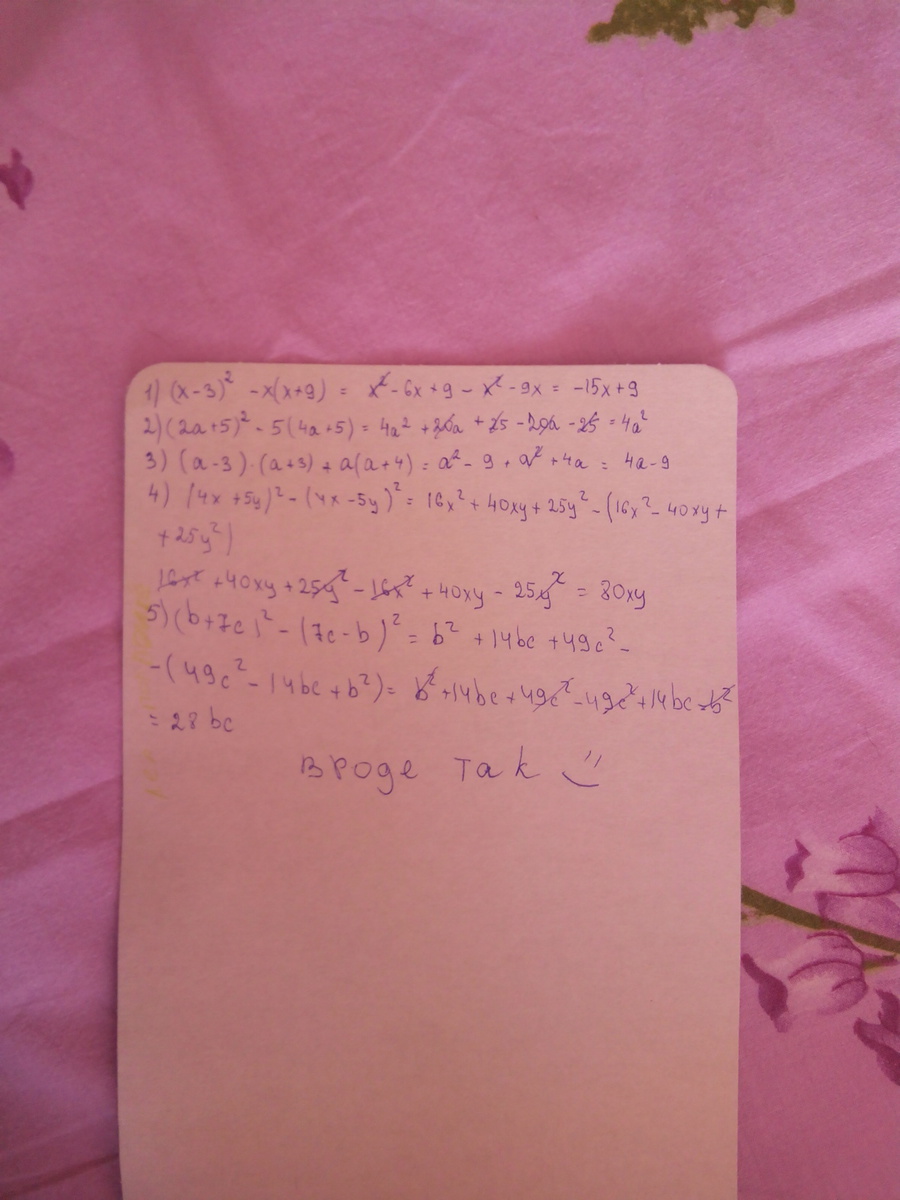 1) (x-3)² -x(x+9) = x²-6x+9 - x² -9x = -15x+9
2) (2a+5)² - 5(4a+5) = 4a² +20a +25 -20a -25 =4a²
3) (a-3)·(a+3) + a(a+4) = a² - 9 + a² +4a = 4a-9
4) (4x +5y)² - (4x -5y)² = 16x² + 40xy + 25y² - (16x² - 40xy +
+25y²)
16x² +40xy +25y² - 16x² + 40xy - 25y² = 80xy
5) (b+7c)² - (7c-b)² = b² +14bc +49c² -
-(49c² -14bc +b²) = b² +14bc +49c² -49c² +14bc -b²
= 28bc
вроде так